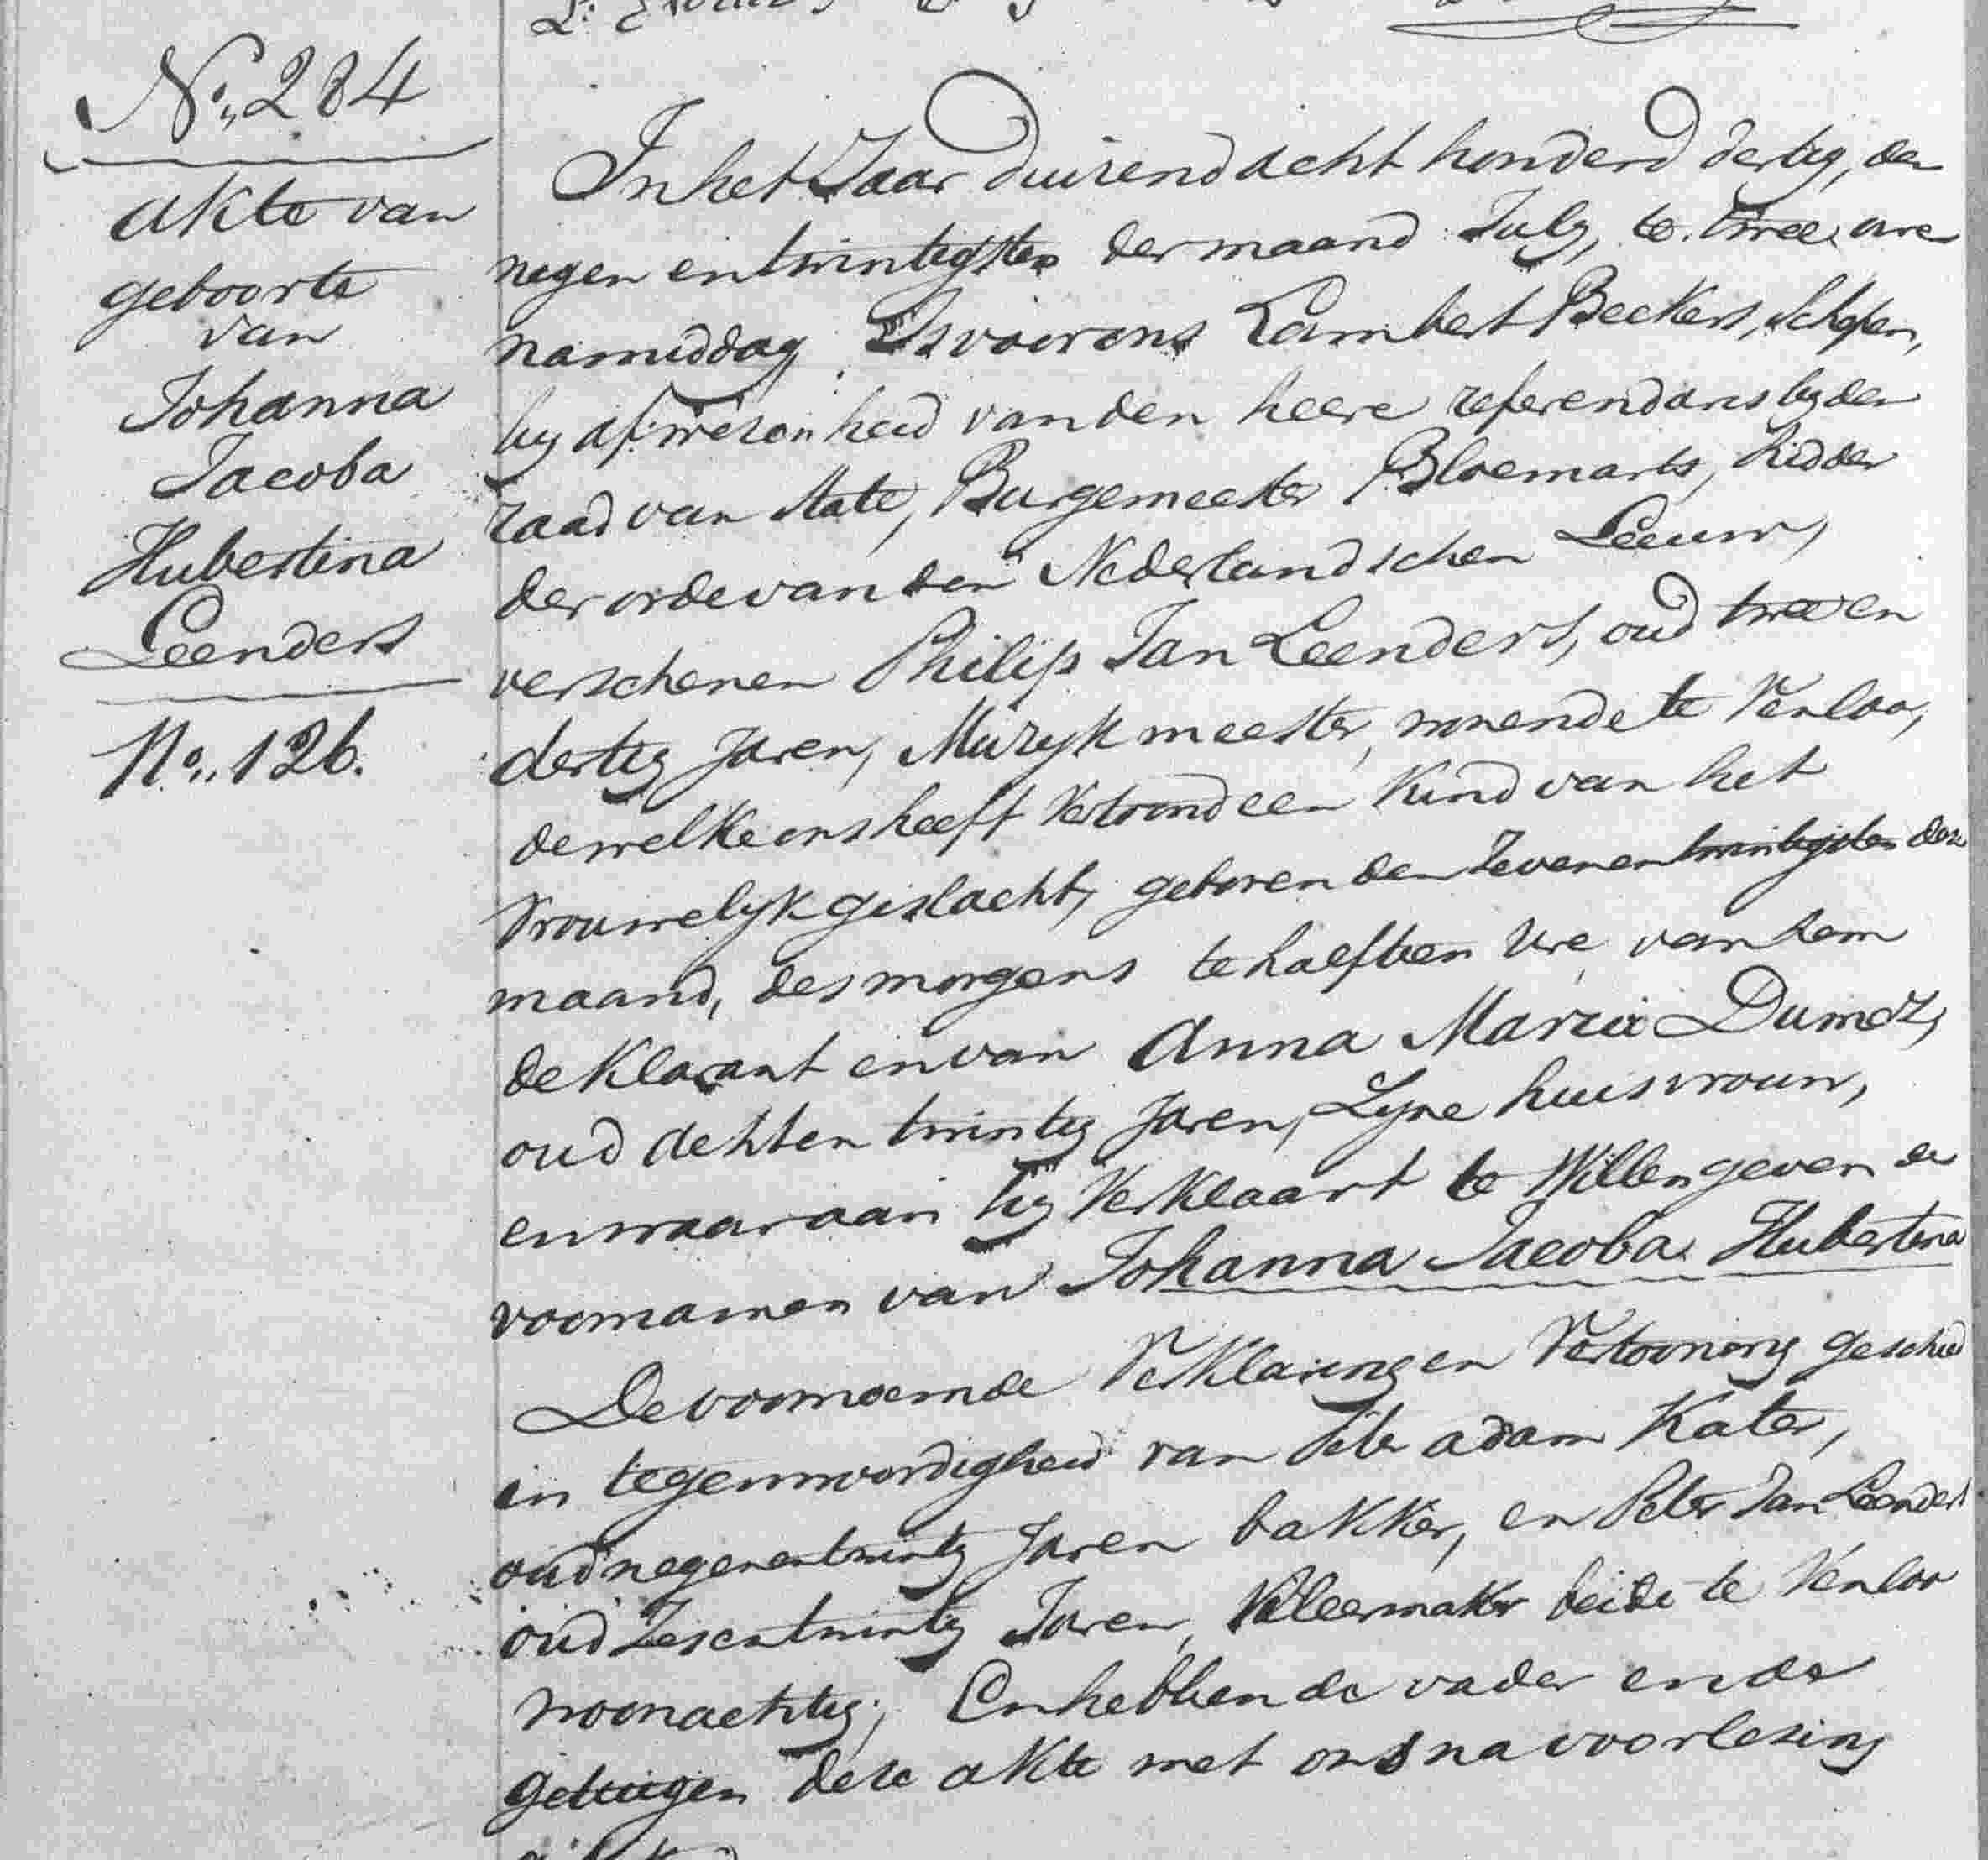 No. 284
Akte van
geboorte
van
Johanna
Jacoba
Hubertina
Leenders
No. 126.
In het Jaar duizend acht honderd dertig, den
negen en twintigsten der maand July, te twee ure
namiddag, Is voor ons Lambert Beckers, Schepen,
by afwezenheid van den heere referendaris by den
raad van State, Burgemeester Bloemarts, Ridder
der orde van den Nederlandschen Leeuw,
verschenen Philip Jan Leenders, oud twee en
dertig Jaren, Muzykmeester, wonende te Venloo,
dewelke ons heeft Vertoond een Kind van het
Vrouwelyk geslacht, geboren den Zeven en twintigsten dezer
maand, des morgens te half tien Ure, van hem
deklarant en van Anna Maria Dumez,
oud achten twintig Jaren, Zyne huisvrouw,
en waaraan hy Verklaart te Willen geven de
voornamen van Johanna Jacoba Hubertina
De voornoemde Verklaring en Vertooning geschied
in tegenwoordigheid van Peter adam Kater,
oud negen en twintig Jaren bakker, en Peter Jan Leenders
oud Zes en twintig Jaren, Kleermaker beide te Venloo
woonachtig; En hebben de vader en de
getuigen deze akte met ons na voorlezing